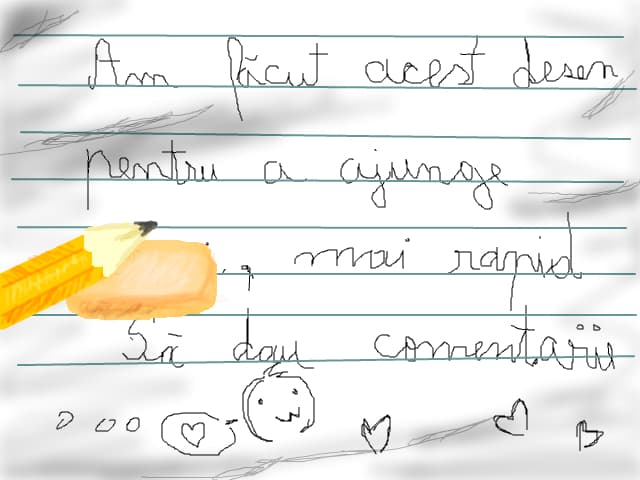 Am făcut acest desen
pentru a ajunge
mai rapid
Să dau comentarii